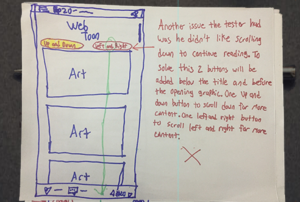 Web
Toon
Up and Down
Left and Right
Art
Art
Art
Another issue the tester had
was he didn't like scrolling
down to continue reading. To
solve this 2 buttons will be
added below the title and before
the opening graphic. One up and
down button to scroll down for more
content. One left and right button
to scroll left and right for more
content.